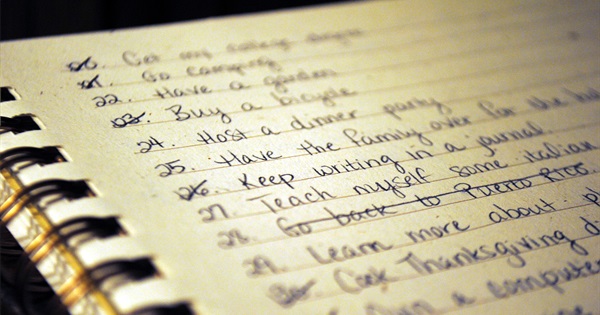 20. Get my college degree
21. Go camping
22. Have a garden
23. Buy a bicycle
24. Host a dinner party
25. Have the family over for the
26. Keep writing in a journal.
27. Teach myself some italian
28. Go back to Puerto Rico
29. Learn more about
30. Cook Thanksgiving
a computer